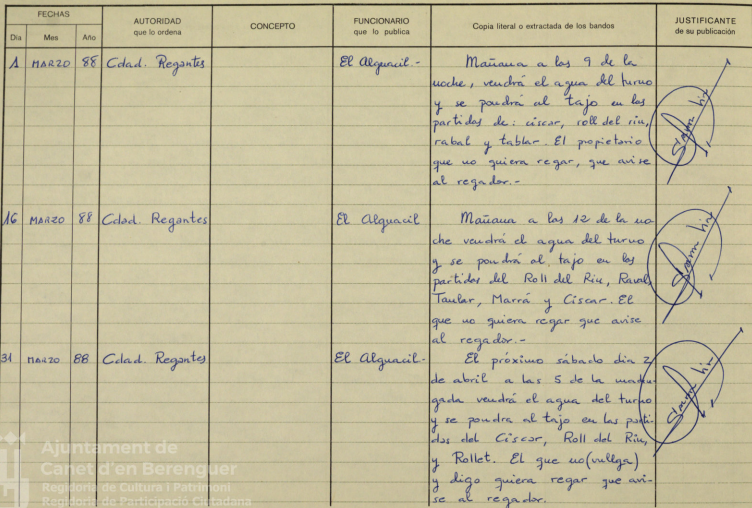 FECHAS
Día Mes Año
AUTORIDAD
que lo ordena
CONCEPTO
FUNCIONARIO
que lo publica
Copia literal o extractada de los bandos
JUSTIFICANTE
de su publicación
1 MARZO 88 Cdad. Regantes El Alguacil.- Mañana a las 9 de la
noche, vendrá el agua del turno
y se pondrá al tajo en las
partidas de: císcar, roll del riu,
rabal y tablar. El propietario
que no quiera regar, que avise
al regador.-
16 MARZO 88 Cdad. Regantes El Alguacil Mañana a las 12 de la no
che vendrá el agua del turno
y se pondrá al tajo en las
partidas del Roll del Riu, Raval,
Taular, Marrá y Císcar. El
que no quiera regar que avise
al regador.-
31 MARZO 88 Cdad. Regantes El Alguacil.- El próximo sábado dia 2
de abril a las 5 de la madru-
gada vendrá el agua del turno
y se pondra al tajo en las parti-
das del Císcar, Roll del Riu,
y Rollet. El que no (vullga)
y digo quiera regar que avi-
se al regador.
Ajuntament de
Canet d'en Berenguer
Regidoria de Cultura i Patrimoni
Regidoria de Participació Ciutadana